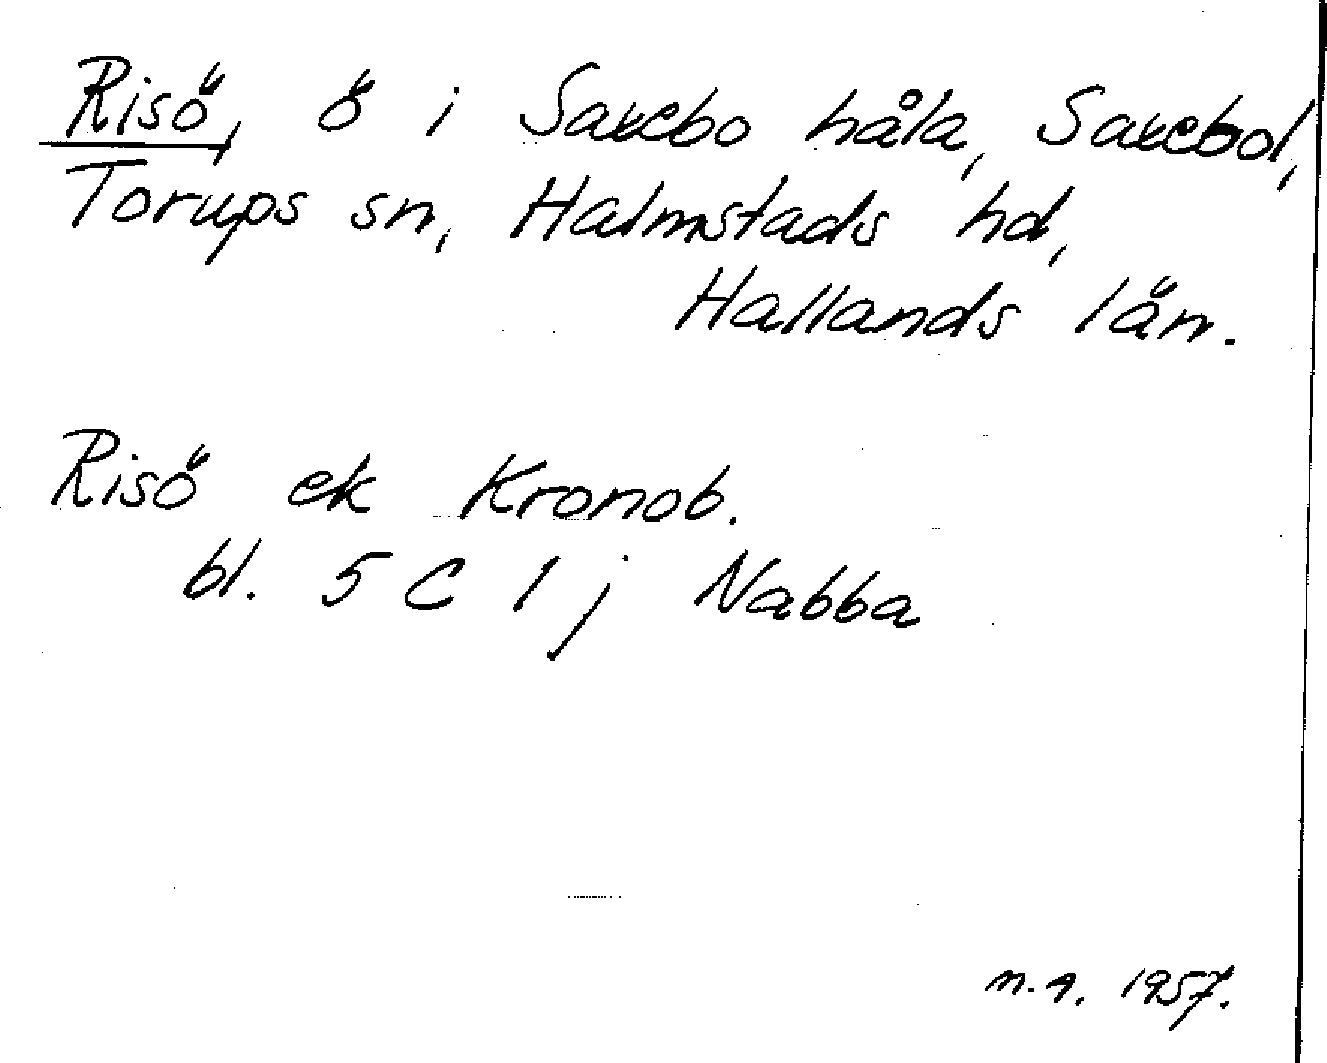 Risö, ö i Saxebo håla, Saxebol,
Torups sn, Halmstads hd,
Hallands län.
Risö ek Kronob.
bl. 5 C 1 j Nabba
1957.